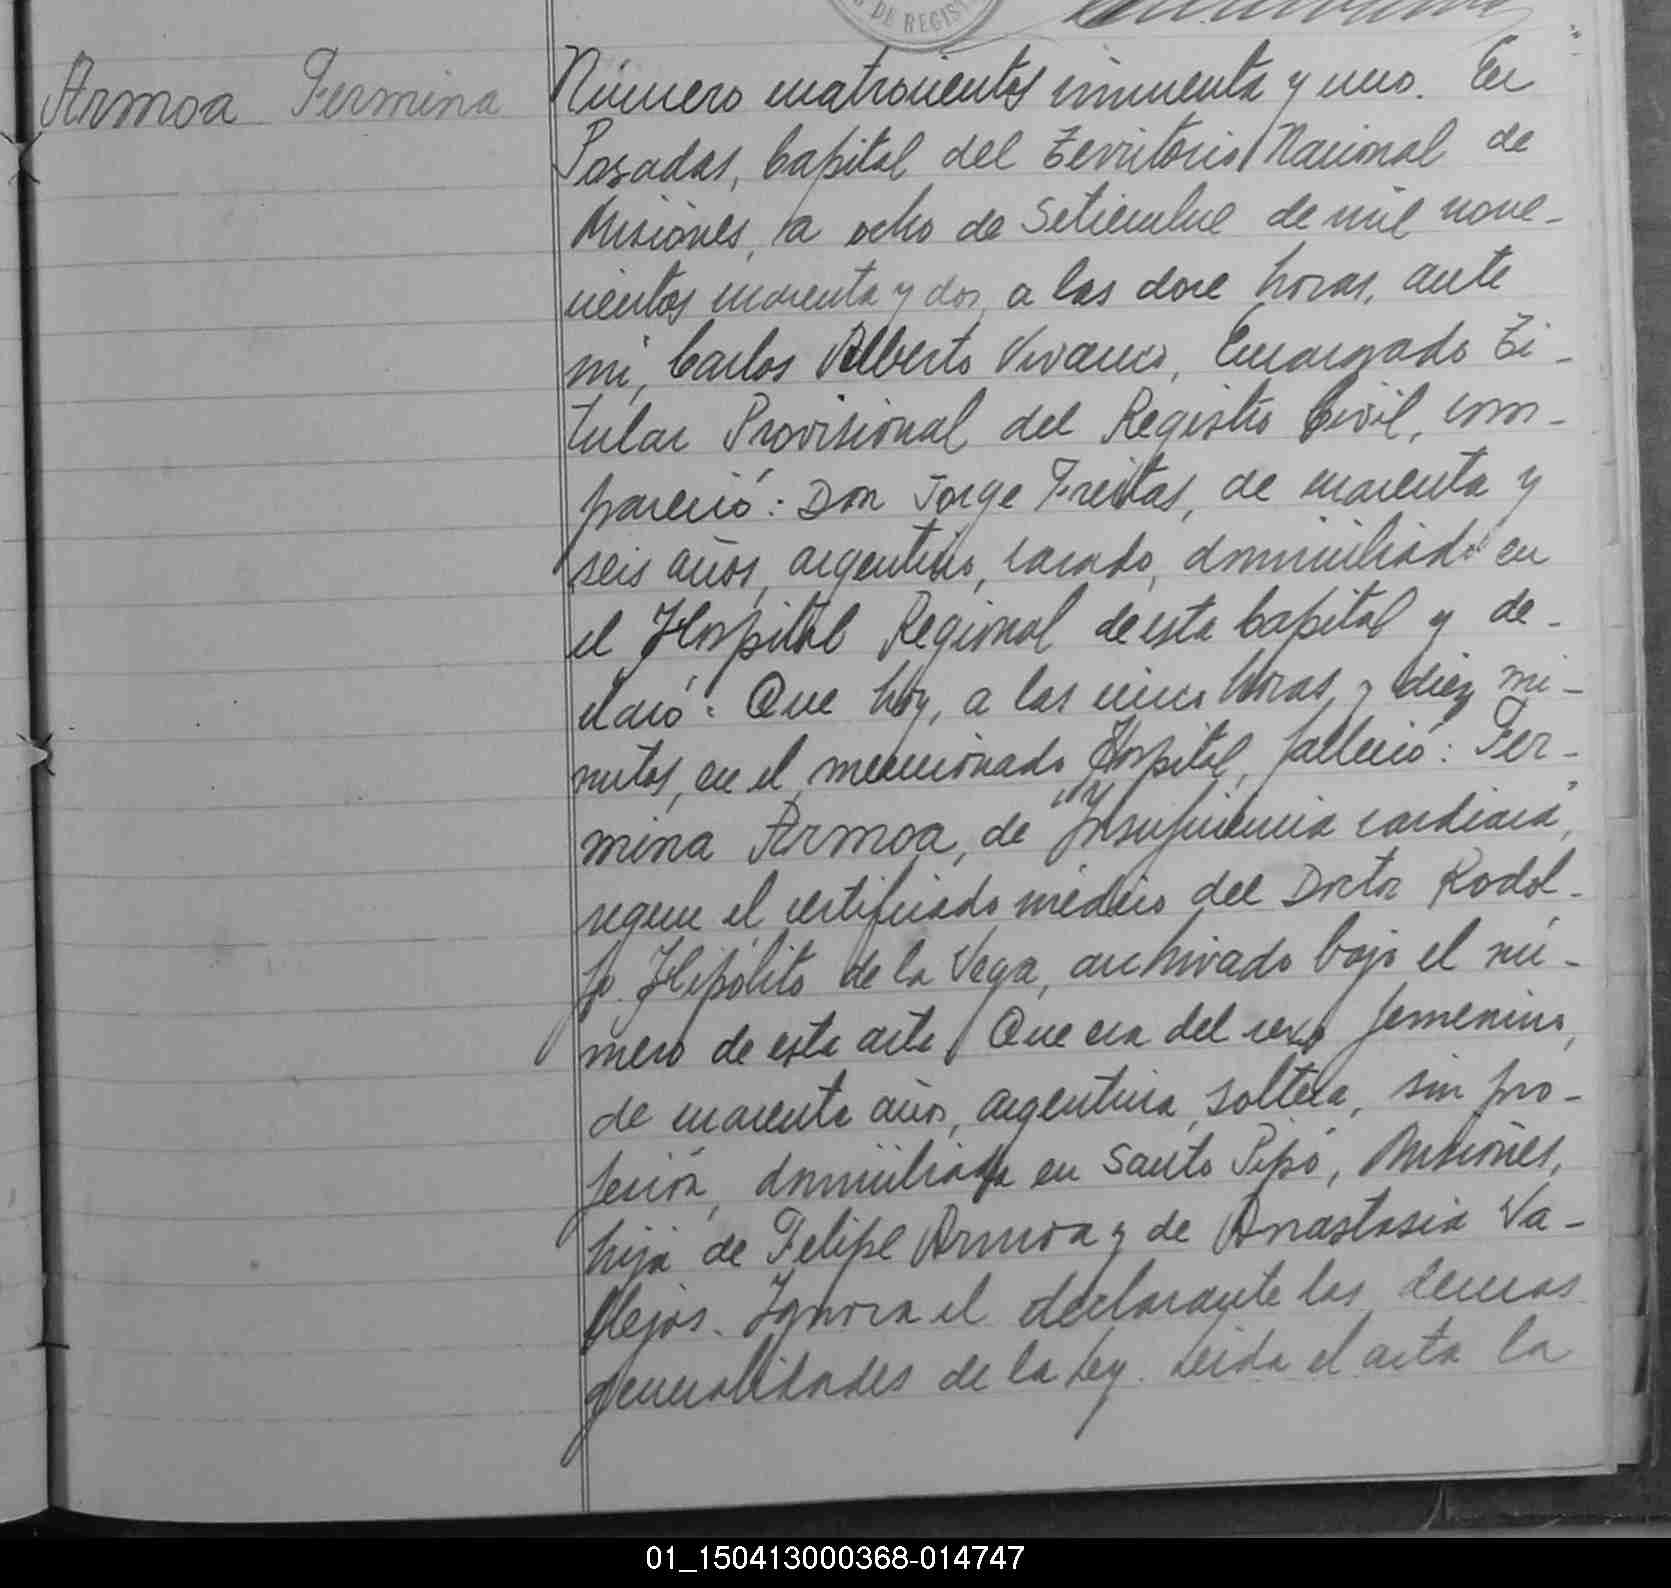 DE REGIS
Armoa Fermina
Número cuatrocientos cincuenta y uno. En
Posadas, Capital del Territorio Nacional de
Misiones, a ocho de Setiembre de mil nove-
cientos cuarenta y dos, a las doce horas, ante
mi, Carlos Alberto Vivanco, Encargado Ti-
tular Provisional del Registro Civil, com-
pareció: Don Jorge Freitas, de cuarenta y
seis años, argentino, casado, domiciliado en
el Hospital Regional de esta Capital y de-
claró: Que hoy, a las cinco horas y diez mi-
nutos, en el mencionado Hospital, falleció: Fer-
mina Armoa, de "Insuficiencia cardiaca",
segun el certificado médico del Doctor Rodol-
fo Hipólito de la Vega, archivado bajo el nú-
mero de esta acta. Que era del sexo femenino,
de cuarenta años, argentina, soltera, sin pro-
fesión, domiciliada en Santo Pipó, Misiones,
hija de Felipe Armoa y de Anastasia Va-
llejos. Ignora el declarante las demas
generalidades de la Ley. Leida el acta la
01_150413000368-014747